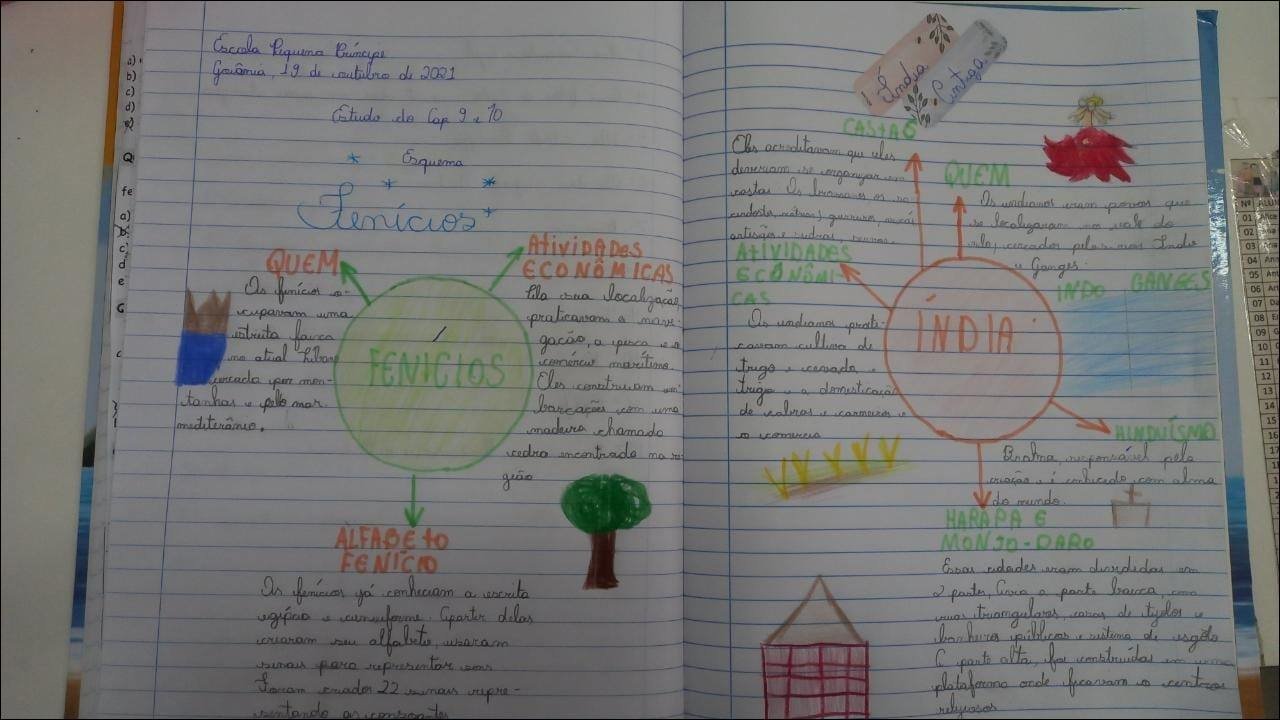 Escola Pequeno Príncipe
Goiânia, 19 de outubro de 2021
Estudo do Cap 9 e 10
Esquema
Fenícios
QUEM
Os fenícios o-
cupavam uma
estreita faixa
no atual Líbano
cercada por mon-
tanhas e pelo mar
mediterâneo.
FENÍCIOS
ATIVIDADES
ECONÔMICAS
Pela sua localização
praticavam a nave-
gação, a pesca e o
comércio marítimo.
Eles construiam em
barcações com uma
madeira chamado
cedro encontrado na re
gião
ALFABETO
FENÍCIO
Os fenícios já conheciam a escrita
egípcia e cuneiforme. Apartir delas
criaram seu alfabeto, usaram
sinais para representar sons
Foram criados 22 sinais repre-
sentando as consoantes
Índia Antiga
CASTAS
Eles acreditavam que eles
deveriam se organizar em
castas Os bramanes os sa
cerdotes, xátrias, guerreiros,
artesãos e sudras, servos.
QUEM
Os indianos eram povos que
se localizaram no vale do
cercados pelos rios Indo
e Ganges.
ATIVIDADES
ECONÔMI-
CAS
Os indianos prati-
cavam cultura de
trigo e cevada e
trigo e a domesticação
de cabras e carneiros e
o comercio
ÍNDIA
INDO GANGES
HINDUÍSMO
Brahma, responsável pela
criação e é conhecido com alma
do mundo.
HARAPA E
MONJO-DARO
Essas cidades eram divididas em
2 partes, a parte baixa, com
ruas triangulares, casas de tijolos e
banheiros públicos e sistema de esgoto
A parte alta, foi construídas em uma
plataforma onde ficavam o centros
religiosos
a)
b)
c)
d)
e)
Q
fe
a)
b)
c
d
e
G
Nº ALUN
01
02
03
04
05
06
07
08
09
10
11
12
13
14
15
16
17